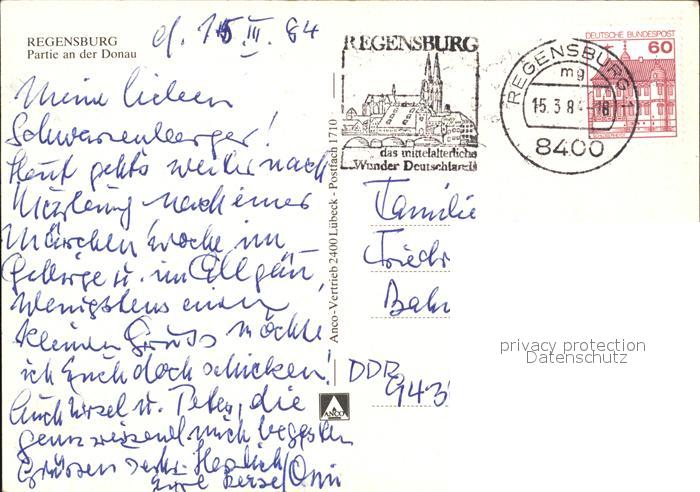 REGENSBURG
Partie an der Donau
d. 15. III. 84
Meine lieben
Schwarzenberger!
Heut gehts weiter nach
nach einer
Märchenwoche im
Gebirge u. im Allgäu,
Wenigstens einen
kleinen Gruss möchte
ich Euch doch schicken!
Auch Ursel u. Peter, die
Grüssen Herzlich
Eure / Omi
Anco-Vertrieb 2400 Lübeck - Postfach 1710
ANCO
REGENSBURG
das mittelalterliche
Wunder Deutschlands
REGENSBURG
mg
15.3.84-18
8400
DEUTSCHE BUNDESPOST
60
Familie
Friedr
Bahn
DDR
943
privacy protection
Datenschutz